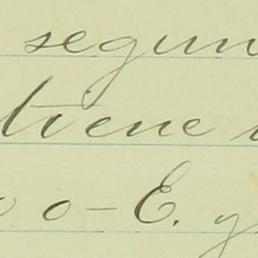 segun
tiene
o-E. y